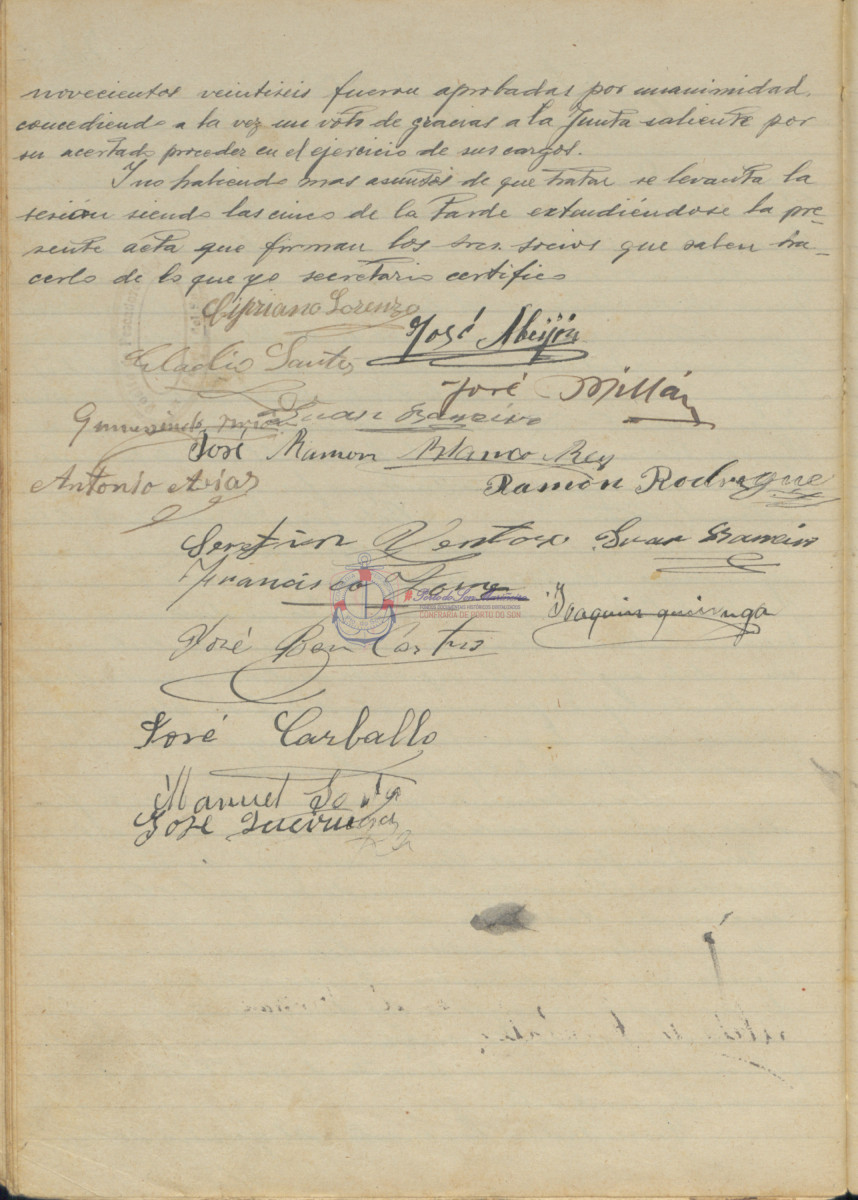 novecientos veintiseis fueron aprobadas por unanimidad,
concediendo a la vez un voto de gracias a la Junta saliente por
su acertado proceder en el ejercicio de sus cargos.
I no habiendo mas asuntos de que tratar se levanta la
sesión siendo las cinco de la tarde extendiéndose la pre-
sente acta que firman los sres. socios que saben ha-
cerlo de lo que yo secretario certifico
Cipriano Lorenzo
José Abeijón
Eladio Santos
José Millán
Juan
José Ramon Blanco Rey
Antonio Arias
Ramón Rodrigue
Juan
Francisco
Porto do Son
CONFRARÍA DE PORTO DO SON
Joaquin quiruga
José
José Carballo
Manuel
Jose